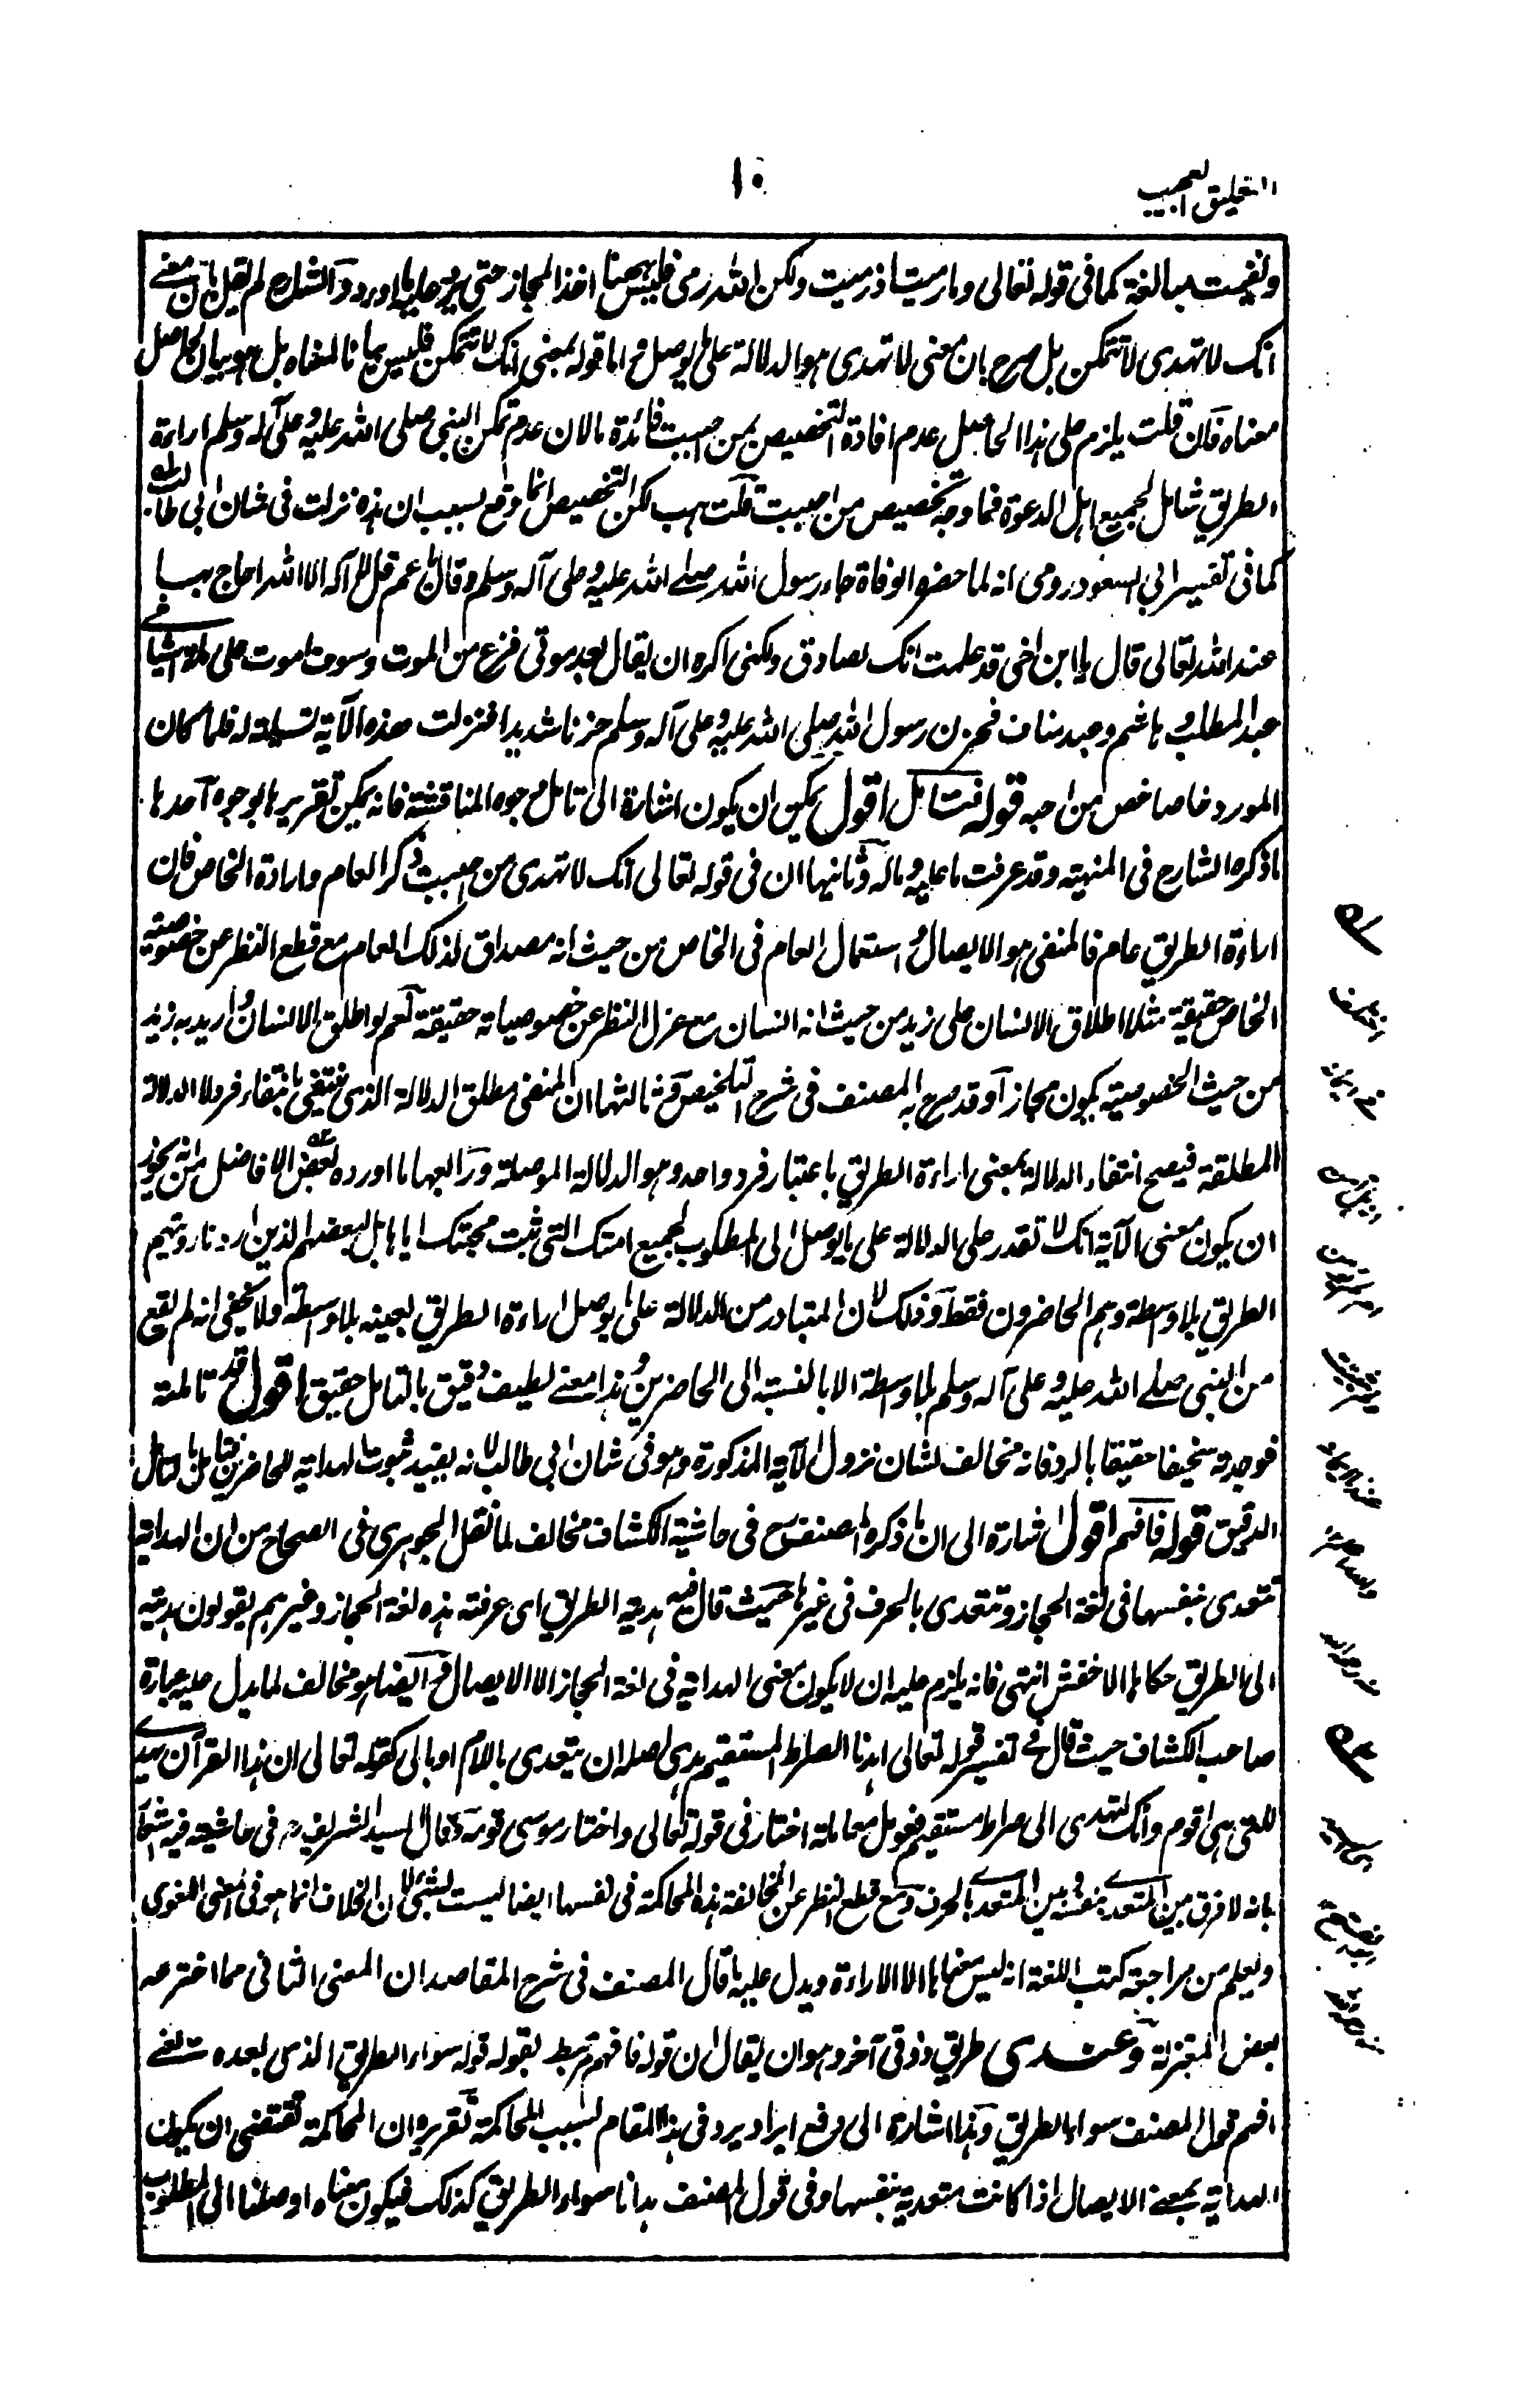 التعليق العجيب
١٠
ونفيت مبالغة كما في قوله تعالى وما رميت اذ رميت ولكن الله رمى فليس ههنا اخذ المجاز حتى يرد عليه ما اورد والشارح لم يقل بان معنى
انك لا تهدى لا تتمكن بل صرح بان معنى لا تهدى هو الدلالة على ما يوصل واما قوله بمعنى انك لا تتمكن فليس بيانا لمعناه بل هو بيان لحاصل
معناه فان قلت يلزم على هذا الحاصل عدم افادة التخصيص بمن احببت فائدة ما لان عدم تمكن النبي صلى الله عليه وعلى آله وسلم اراءة
الطريق شامل لجميع اهل الدعوة فما وجه تخصيص من احببت قلت هب لكن التخصيص انما وقع لسبب ان هذه نزلت في شان ابي طالب
كما في تفسير ابي السعود رومى انه لما حضره الوفاة جاء رسول الله صلى الله عليه وعلى آله وسلم وقال يا عم قل لا اله الا الله احاج بها
عند الله تعالى قال يا ابن اخى قد علمت انك لصادق ولكنى اكره ان يقال بعد موتى فزع من الموت وسوف اموت على ملة اشياخى
عبد المطلب وهاشم وعبد مناف فحزن رسول الله صلى الله عليه وعلى آله وسلم حزنا شديدا فنزلت هذه الآية تسلية له فلما كان
المورد خاصا خص من احبه قوله فتامل اقول يمكن ان يكون اشارة الى تامل وجوه المناقشة فانه يمكن تقريرها بوجوه احدها
ما ذكره الشارح في المنهية وقد عرفت ما عليه وما له وثانيها ان في قوله تعالى انك لا تهدى من احببت ذكر العام وارادة الخاص فان
اراءة الطريق عام فالمنفى هو الايصال واستعمال العام في الخاص من حيث انه مصداق لذلك العام مع قطع النظر عن خصوصية
الخاص حقيقة مثلا اطلاق الانسان على زيد من حيث انه انسان مع عزل النظر عن خصوصياته حقيقة نعم لو اطلق الانسان واريد به زيد
من حيث الخصوصية يكون مجازا وقد صرح به المصنف في شرح التلخيص وثالثها ان المنفى مطلق الدلالة الذى ينتفى بانتفاء فرد لا الدلالة
المطلقة فيصح انتفاء الدلالة بمعنى اراءة الطريق باعتبار فرد واحد وهو الدلالة الموصلة ورابعها ما اورده بعض الافاضل من انه يجوز
ان يكون معنى الآية انك لا تقدر على الدلالة على ما يوصل الى المطلوب لجميع امتك التى ثبت محبتك اياها بل لبعضهم الذين اردنا رويتهم
الطريق بلا واسطة وهم الحاضرون فقط وذلك لان المتبادر من الدلالة على ما يوصل اراءة الطريق بعينه بلا واسطة ولا يخفى انه لم يقع
من النبي صلى الله عليه وعلى آله وسلم بلا واسطة الا بالنسبة الى الحاضرين وهذا معنى لطيف دقيق بالتامل حقيق اقول قد تاملته
فوجدته سخيفا حقيقا بالرد فانه مخالف لشان نزول الآية المذكورة وهو في شان ابي طالب لانه يفيد ثبوت الهداية للحاضرين فتامل بالتامل
الدقيق قوله فافهم اقول اشارة الى ان ما ذكره المصنف رح في حاشية الكشاف مخالف لما نقل الجوهرى في الصحاح من ان الهداية
تتعدى بنفسها في لغة الحجاز وتتعدى بالحرف في غيرها حيث قال فيه هديته الطريق اى عرفته هذه لغة الحجاز وغيرهم يقولون هديته
الى الطريق حكاها الاخفش انتهى فانه يلزم عليه ان لا يكون معنى الهداية في لغة الحجاز الا الايصال وايضا هو مخالف لما يدل عليه عبارة
صاحب الكشاف حيث قال في تفسير قوله تعالى اهدنا الصراط المستقيم هدى اصله ان يتعدى باللام او بالى كقوله تعالى ان هذا القرآن يهدى
للتى هى اقوم وانك لتهدى الى صراط مستقيم فعومل معاملة اختار في قوله تعالى واختار موسى قومه وقال السيد الشريف رح في حاشيته فيه اشعار
بانه لا فرق بين المتعدى بنفسه وبين المتعدى بالحرف ومع قطع النظر عن المخالفة هذه المحاكمة في نفسها ايضا ليست بشئ لان الخلاف انما هو في المعنى اللغوى
ويعلم من مراجعة كتب اللغة انه ليس معناها الا الاراءة ويدل عليه ما قال المصنف في شرح المقاصد ان المعنى الثانى مما اخترعه
بعض المعتزلة وعندى طريق ذوقى آخر وهو ان يقال ان قوله فافهم مرتبط بقوله قوله سواء الطريق الذى بعده يعنى
افهم قول المصنف سواء الطريق وهذا اشارة الى دفع ايراد يرد في هذا المقام بسبب المحاكمة تقريره ان المحاكمة تقتضى ان يكون
الهداية بمعنى الايصال اذا كانت متعدية بنفسها وفى قول المصنف هدانا سواء الطريق كذلك فيكون معناه اوصلنا الى المطلوب